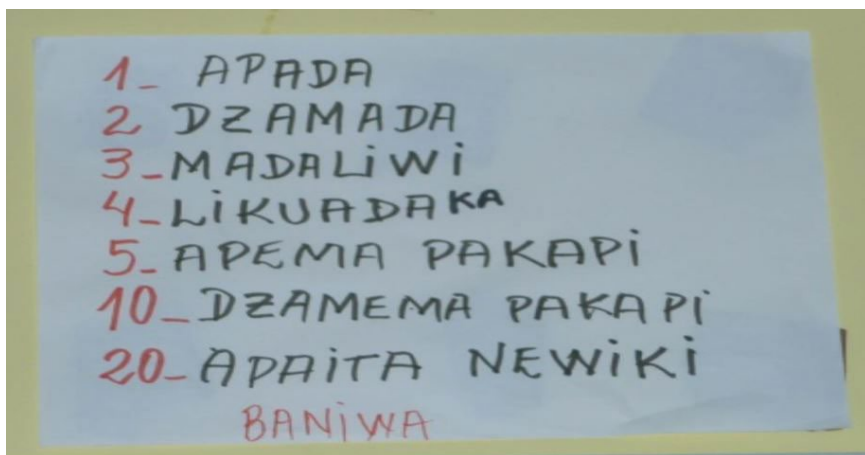 1_ APADA
2 DZAMADA
3_MADALiWi
4_LiKUADAKA
5_APEMA PAKAPi
10_DZAMEMA PAKAPi
20_APAiTA NEWiKi
BANiWA